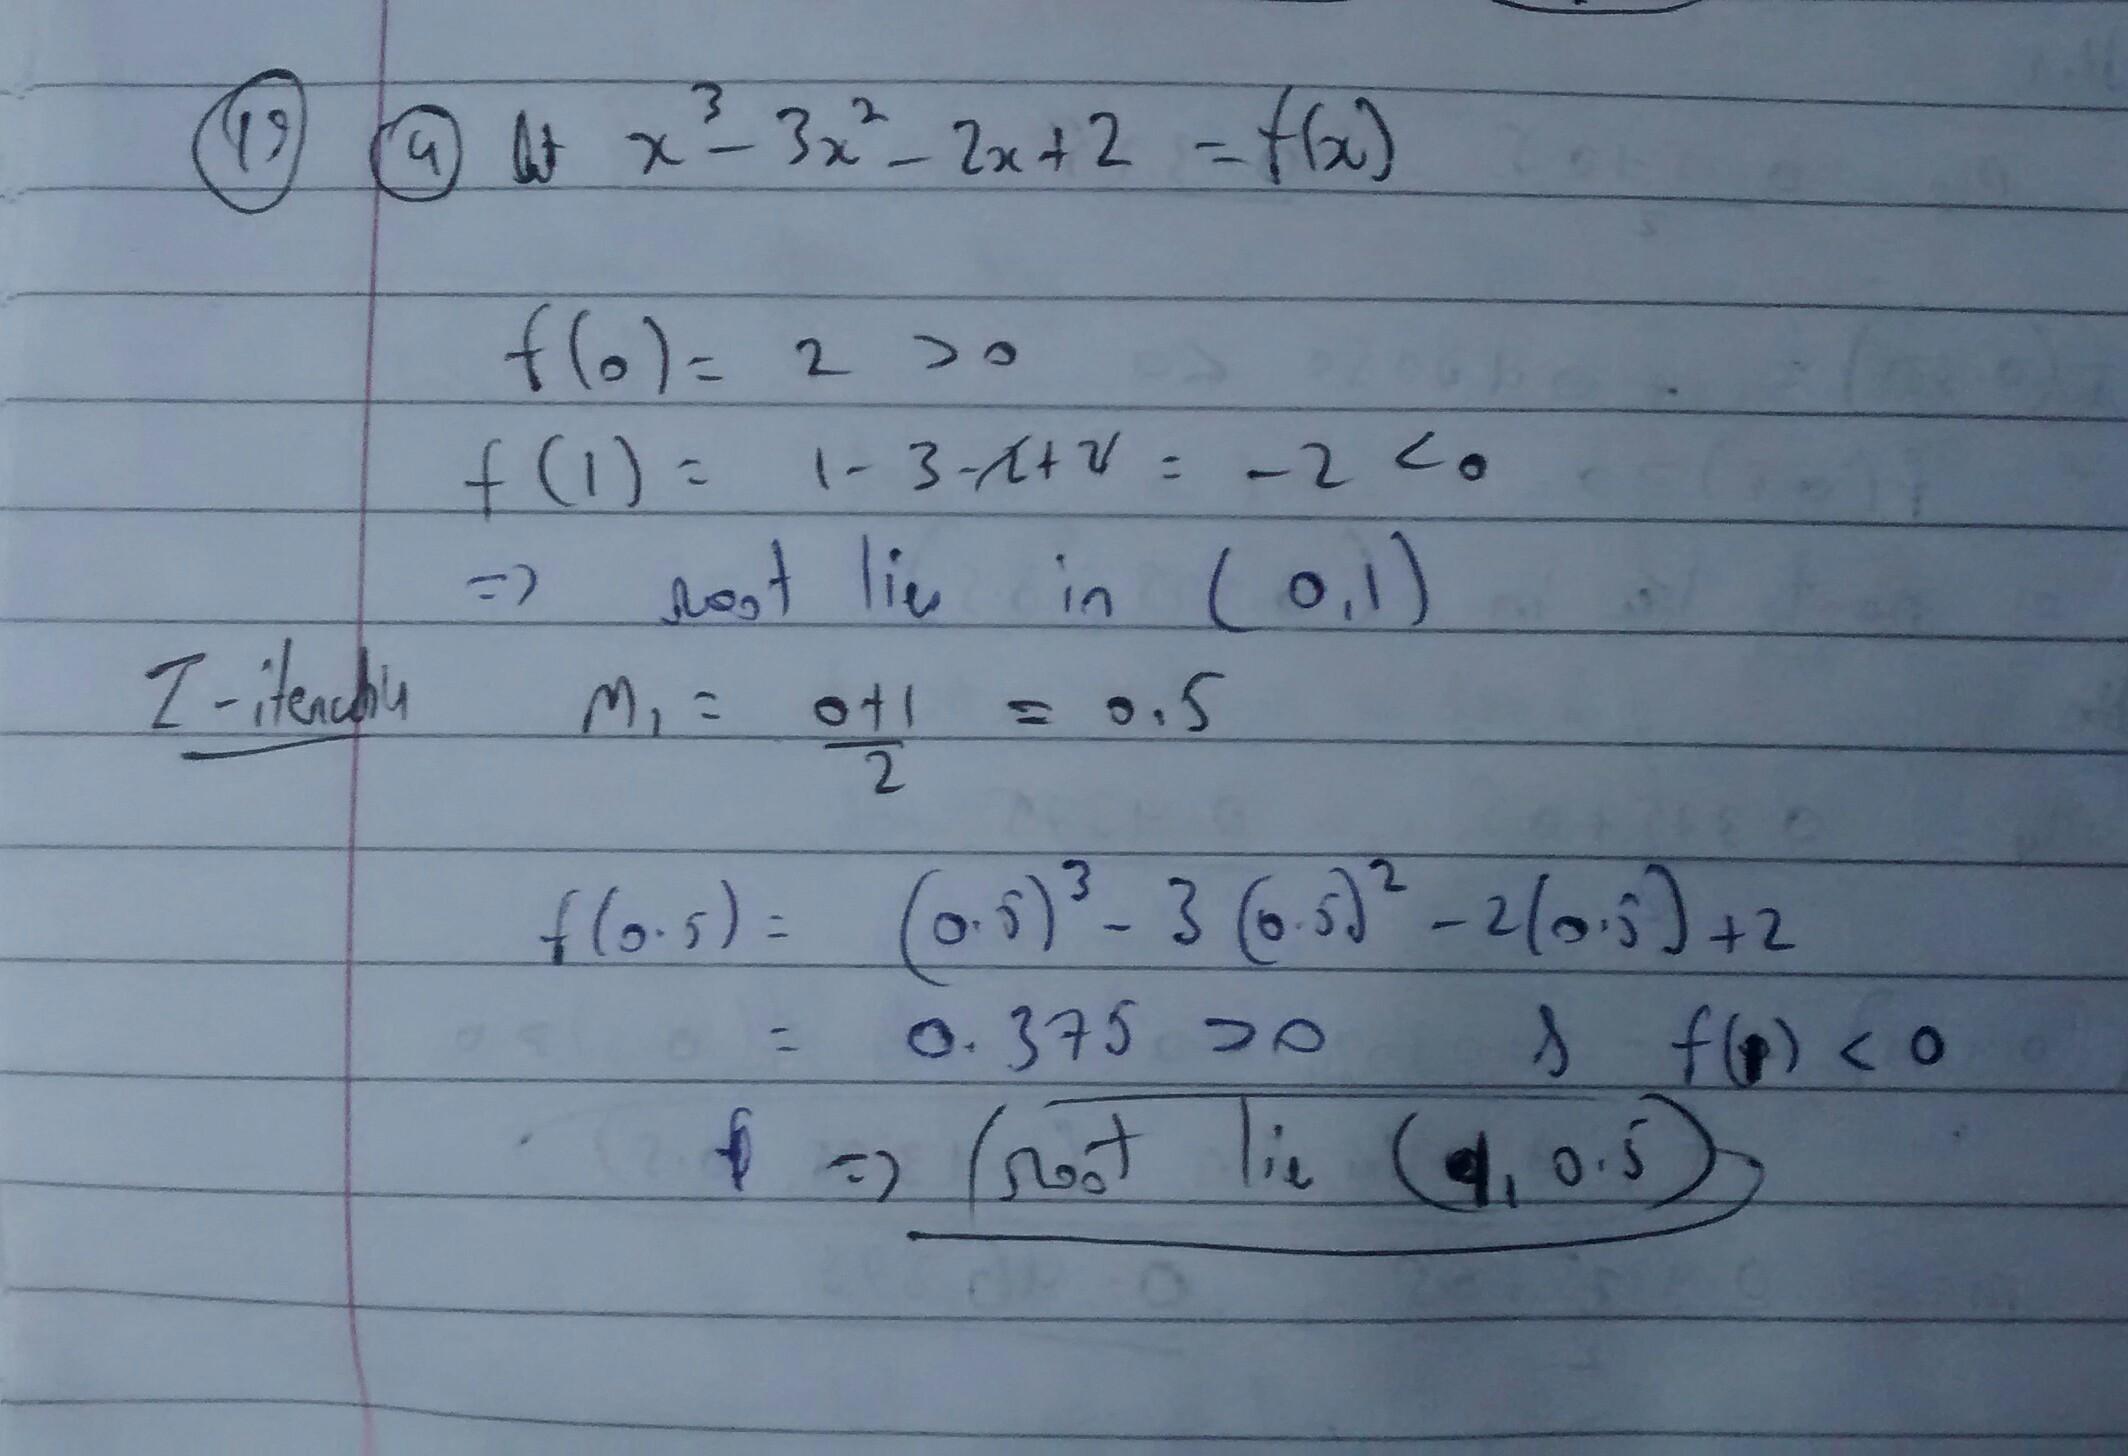 19 a let x³ - 3x² - 2x + 2 = f(x)
f(0) = 2 > 0
f(1) = 1 - 3 - 2 + 2 = -2 < 0
=> root lies in (0,1)
I - iteration M₁ = (0+1)/2 = 0.5
f(0.5) = (0.5)³ - 3(0.5)² - 2(0.5) + 2
= 0.375 > 0 & f(1) < 0
=> root lie (1, 0.5)